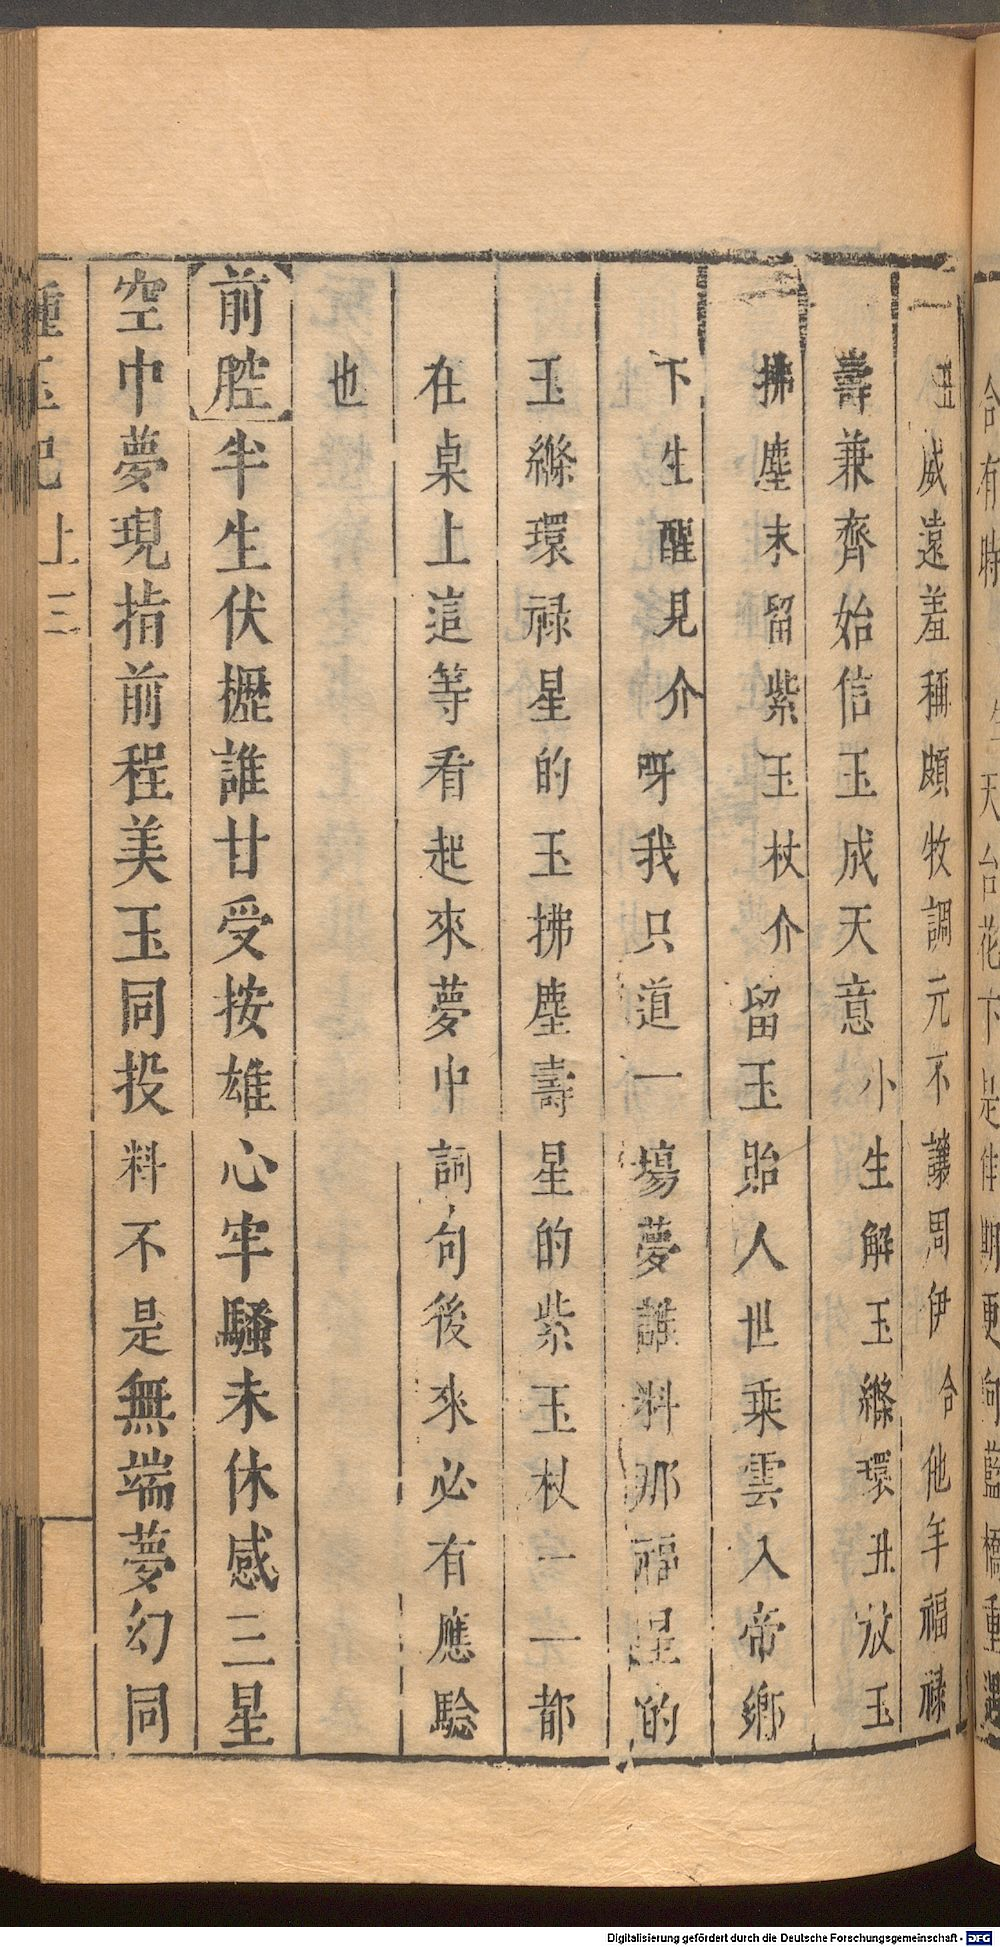 合有時 生天台花下是佳期更向藍橋重遇
丑威遠羞稱頗牧調元不讓周伊合他年福祿
壽兼齊始信玉成天意小生解玉縧環丑放玉
拂塵末留紫玉杖介留玉貽人世乘雲入帝鄉
下生醒見介呀我只道一場夢誰料那福星的
玉縧環祿星的玉拂塵壽星的紫玉杖一一都
在桌上這等看起來夢中詞句後來必有應驗
也
前腔半生伏櫪誰甘受按雄心牢騷未休感三星
空中夢現指前程美玉同投料不是無端夢幻同
種玉記 上 三
Digitalisierung gefördert durch die Deutsche Forschungsgemeinschaft - DFG